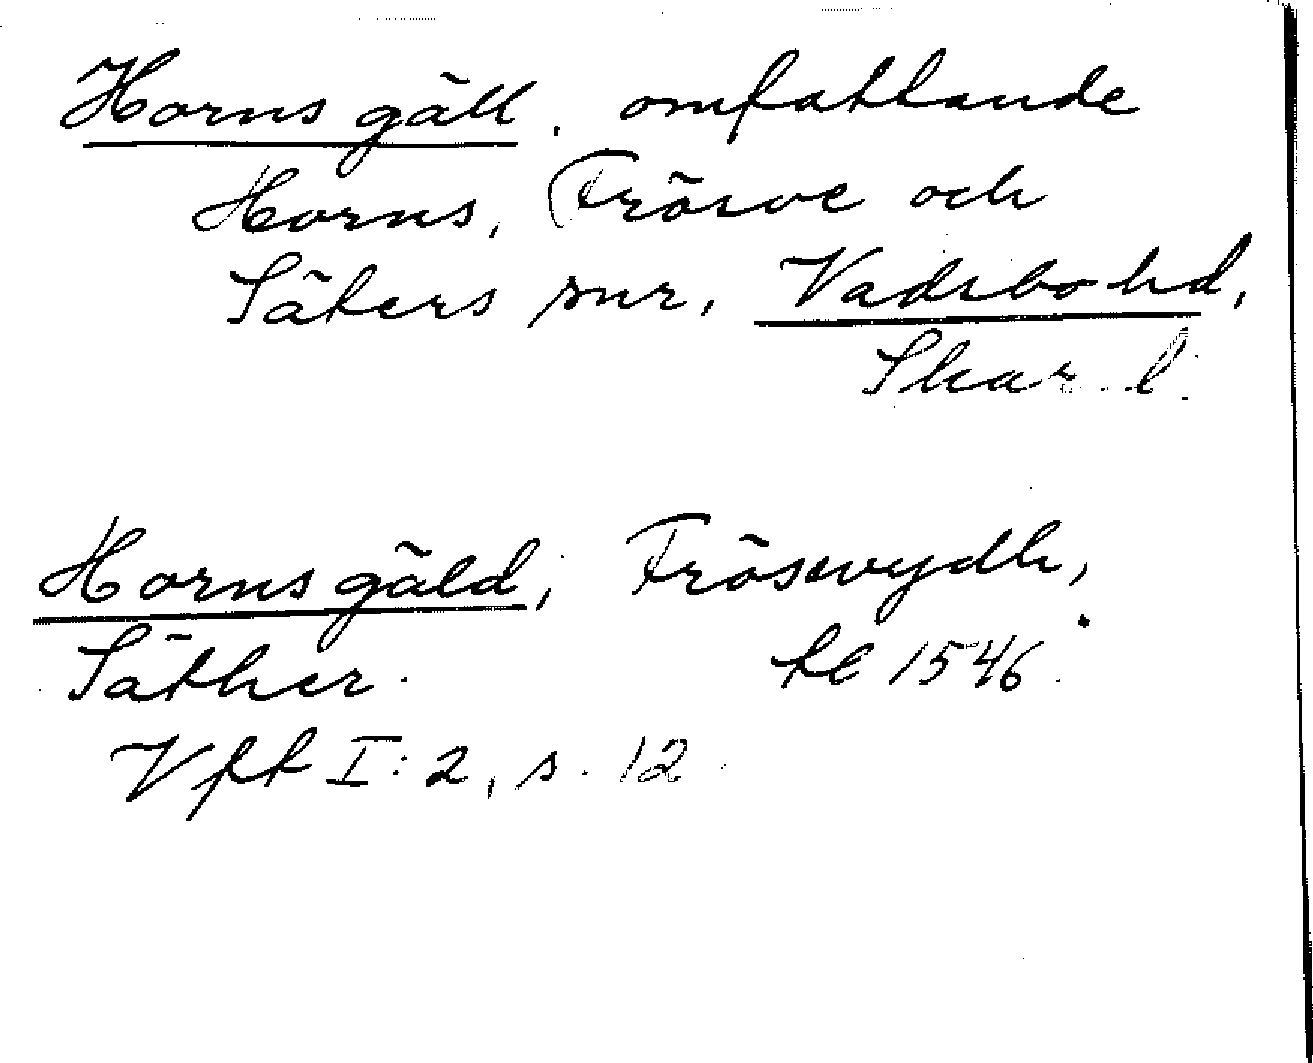 Horns gäll, omfattande
Horns, Frösve och
Säters snr, Vadsbo hd,
Skar. l.
Horns gäld, Fröswydh,
Säther. te 1546.
Vft I:2, s. 12.